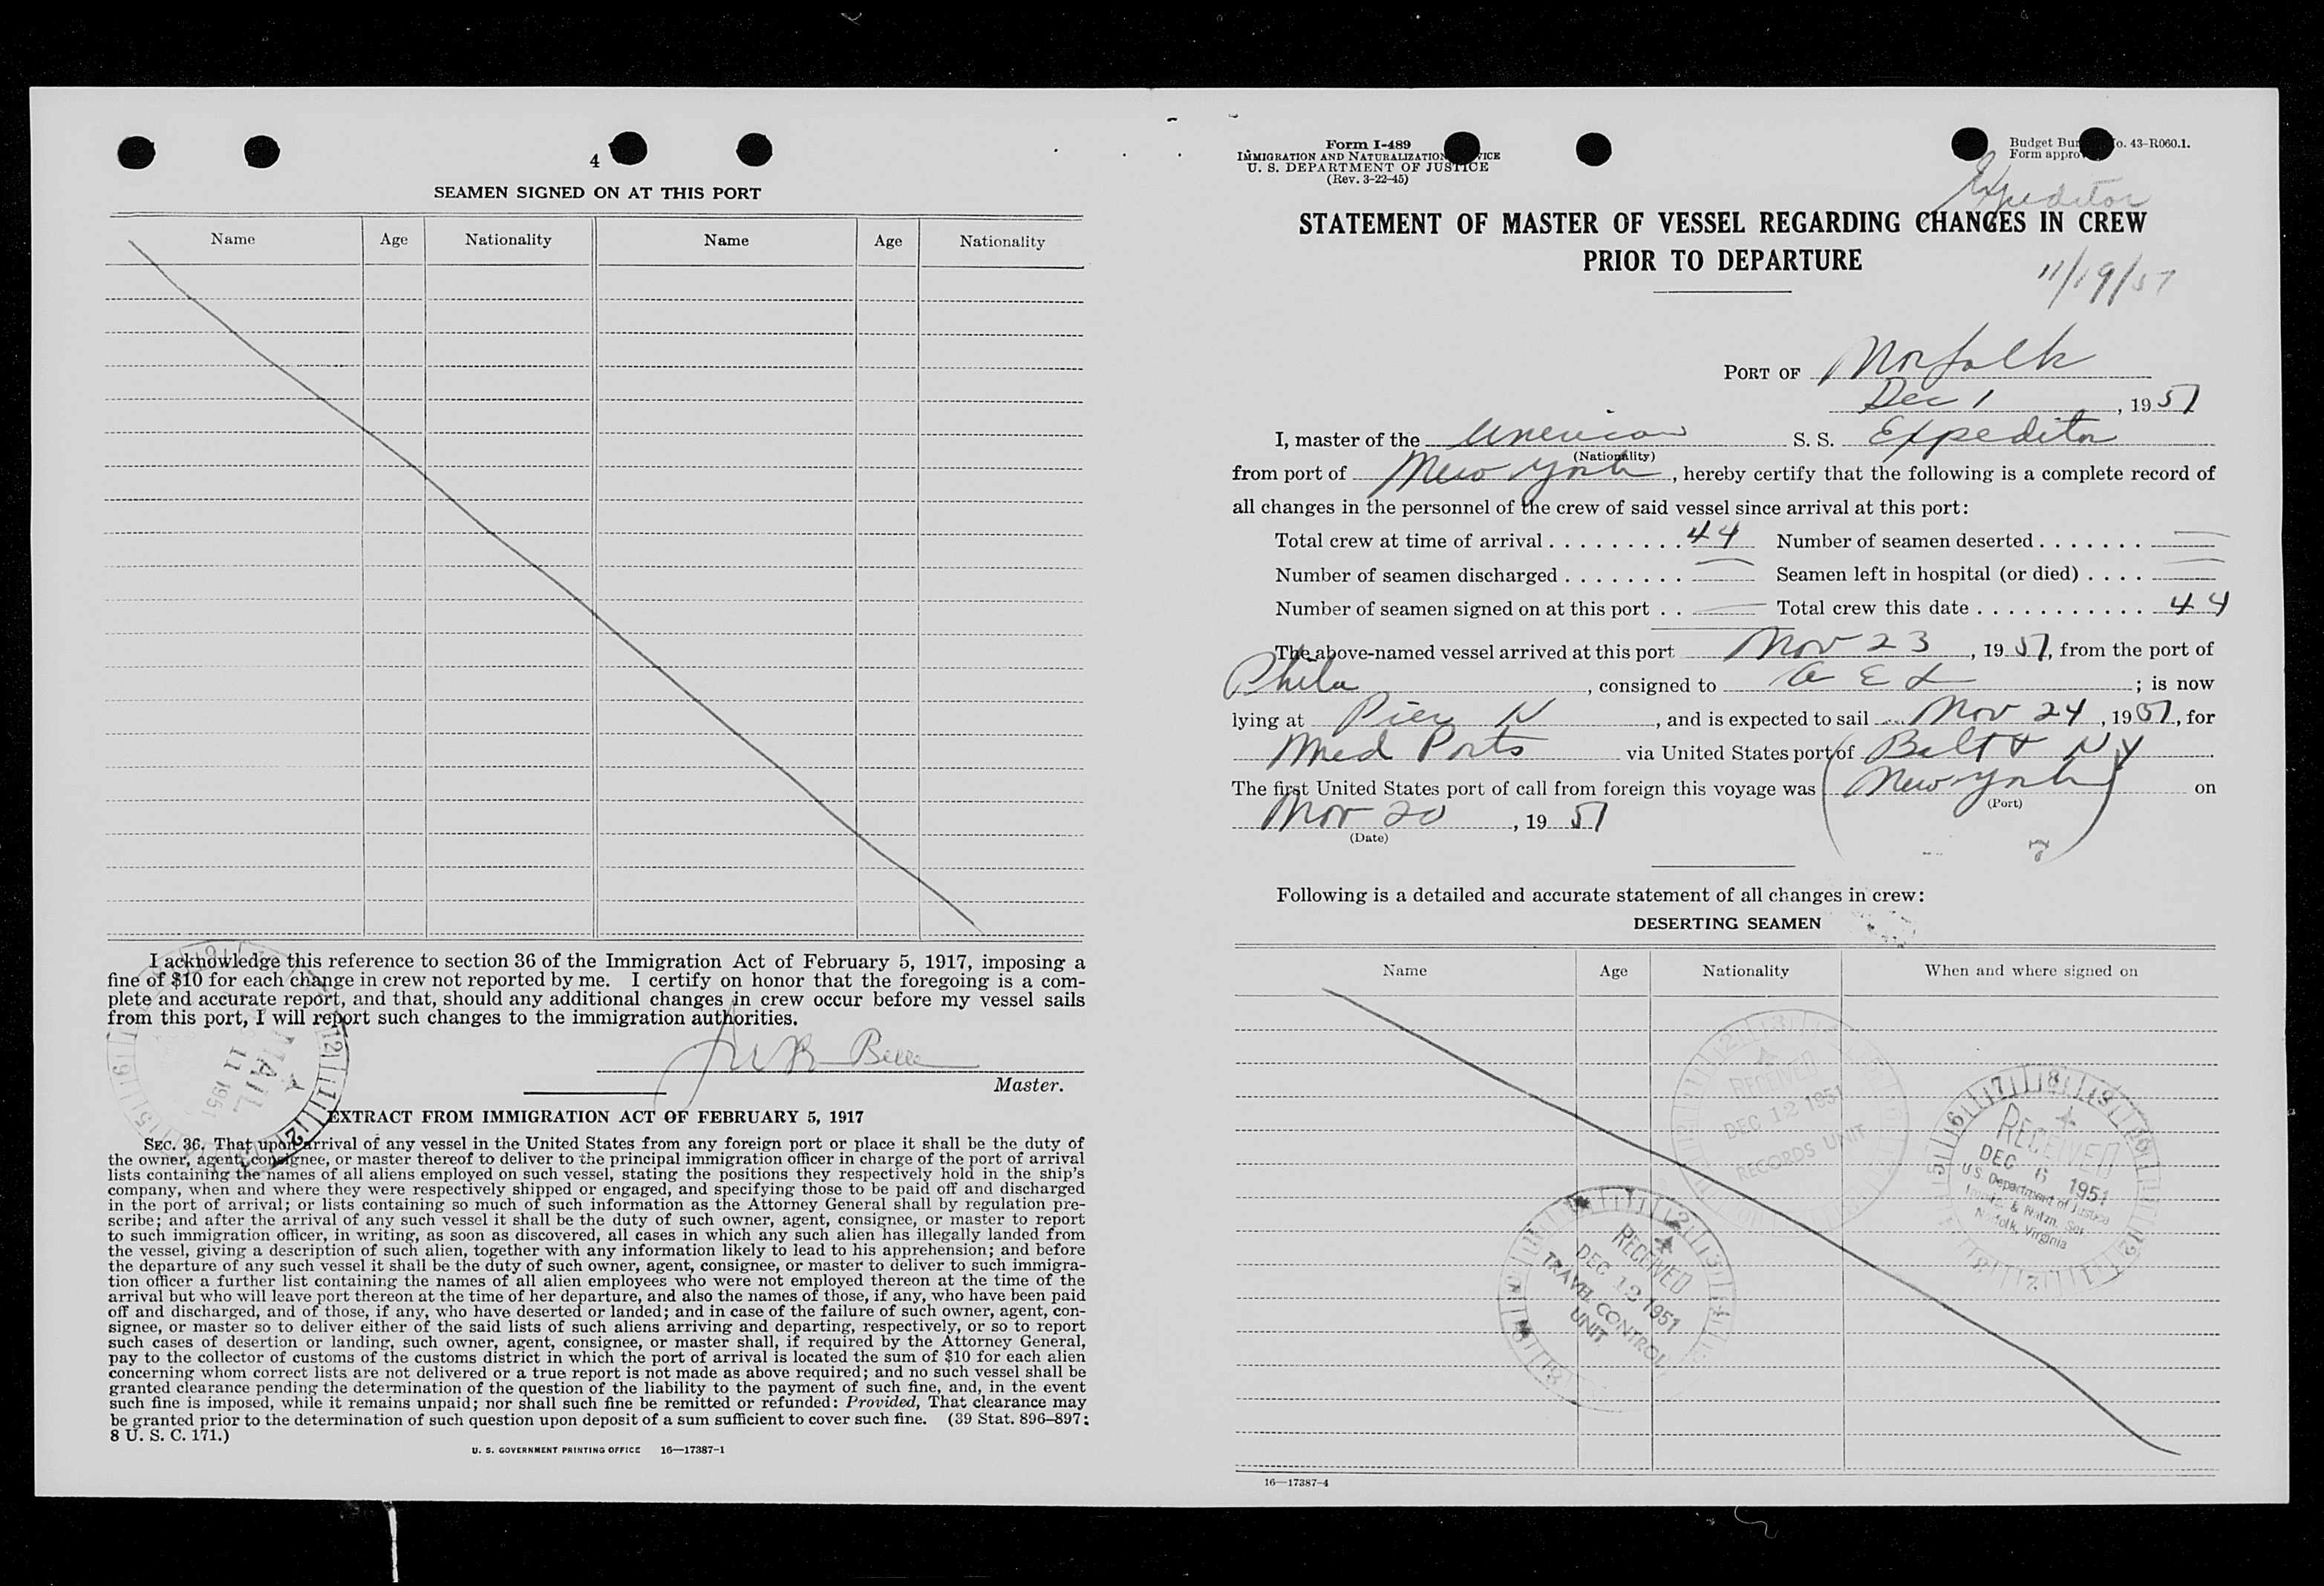 4
SEAMEN SIGNED ON AT THIS PORT
Name Age Nationality Name Age Nationality
I acknowledge this reference to section 36 of the Immigration Act of February 5, 1917, imposing a
fine of $10 for each change in crew not reported by me. I certify on honor that the foregoing is a com-
plete and accurate report, and that, should any additional changes in crew occur before my vessel sails
from this port, I will report such changes to the immigration authorities.
Master.
MAIL
11 1951
EXTRACT FROM IMMIGRATION ACT OF FEBRUARY 5, 1917
SEC. 36. That upon arrival of any vessel in the United States from any foreign port or place it shall be the duty of
the owner, agent, consignee, or master thereof to deliver to the principal immigration officer in charge of the port of arrival
lists containing the names of all aliens employed on such vessel, stating the positions they respectively hold in the ship's
company, when and where they were respectively shipped or engaged, and specifying those to be paid off and discharged
in the port of arrival; or lists containing so much of such information as the Attorney General shall by regulation pre-
scribe; and after the arrival of any such vessel it shall be the duty of such owner, agent, consignee, or master to report
to such immigration officer, in writing, as soon as discovered, all cases in which any such alien has illegally landed from
the vessel, giving a description of such alien, together with any information likely to lead to his apprehension; and before
the departure of any such vessel it shall be the duty of such owner, agent, consignee, or master to deliver to such immigra-
tion officer a further list containing the names of all alien employees who were not employed thereon at the time of the
arrival but who will leave port thereon at the time of her departure, and also the names of those, if any, who have been paid
off and discharged, and of those, if any, who have deserted or landed; and in case of the failure of such owner, agent, con-
signee, or master so to deliver either of the said lists of such aliens arriving and departing, respectively, or so to report
such cases of desertion or landing, such owner, agent, consignee, or master shall, if required by the Attorney General,
pay to the collector of customs of the customs district in which the port of arrival is located the sum of $10 for each alien
concerning whom correct lists are not delivered or a true report is not made as above required; and no such vessel shall be
granted clearance pending the determination of the question of the liability to the payment of such fine, and, in the event
such fine is imposed, while it remains unpaid; nor shall such fine be remitted or refunded: Provided, That clearance may
be granted prior to the determination of such question upon deposit of a sum sufficient to cover such fine. (39 Stat. 896–897;
8 U. S. C. 171.)
U. S. GOVERNMENT PRINTING OFFICE 16—17387-1
Form I-489
IMMIGRATION AND NATURALIZATION VICE
U. S. DEPARTMENT OF JUSTICE
(Rev. 3-22-45)
Budget Bur o. 43-R060.1.
Form appro
Expeditor
STATEMENT OF MASTER OF VESSEL REGARDING CHANGES IN CREW
PRIOR TO DEPARTURE
11/19/51
PORT OF Norfolk
Dec 1, 1951
I, master of the American S. S. Expeditor
(Nationality)
from port of New York, hereby certify that the following is a complete record of
all changes in the personnel of the crew of said vessel since arrival at this port:
Total crew at time of arrival . . . . . . . . . 44 Number of seamen deserted . . . . . . . —
Number of seamen discharged . . . . . . . . — Seamen left in hospital (or died) . . . . —
Number of seamen signed on at this port . . — Total crew this date . . . . . . . . . . . . 44
The above-named vessel arrived at this port Nov 23, 1951, from the port of
Phila, consigned to A E L; is now
lying at Pier N, and is expected to sail Nov 24, 1951, for
Med Ports via United States port of Balt & NY
The first United States port of call from foreign this voyage was (New York) on
(Port)
Nov 20, 1951
(Date)
Following is a detailed and accurate statement of all changes in crew:
DESERTING SEAMEN
Name Age Nationality When and where signed on
RECEIVED
DEC 12 1951
RECORDS UNIT
RECEIVED
DEC 6 1951
U.S. Department of Justice
Immig. & Natzn. Ser
Norfolk, Virginia
RECEIVED
DEC 12 1951
TRAVEL CONTROL
UNIT
16—17387-4